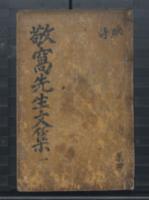 敬窩先生文集 一